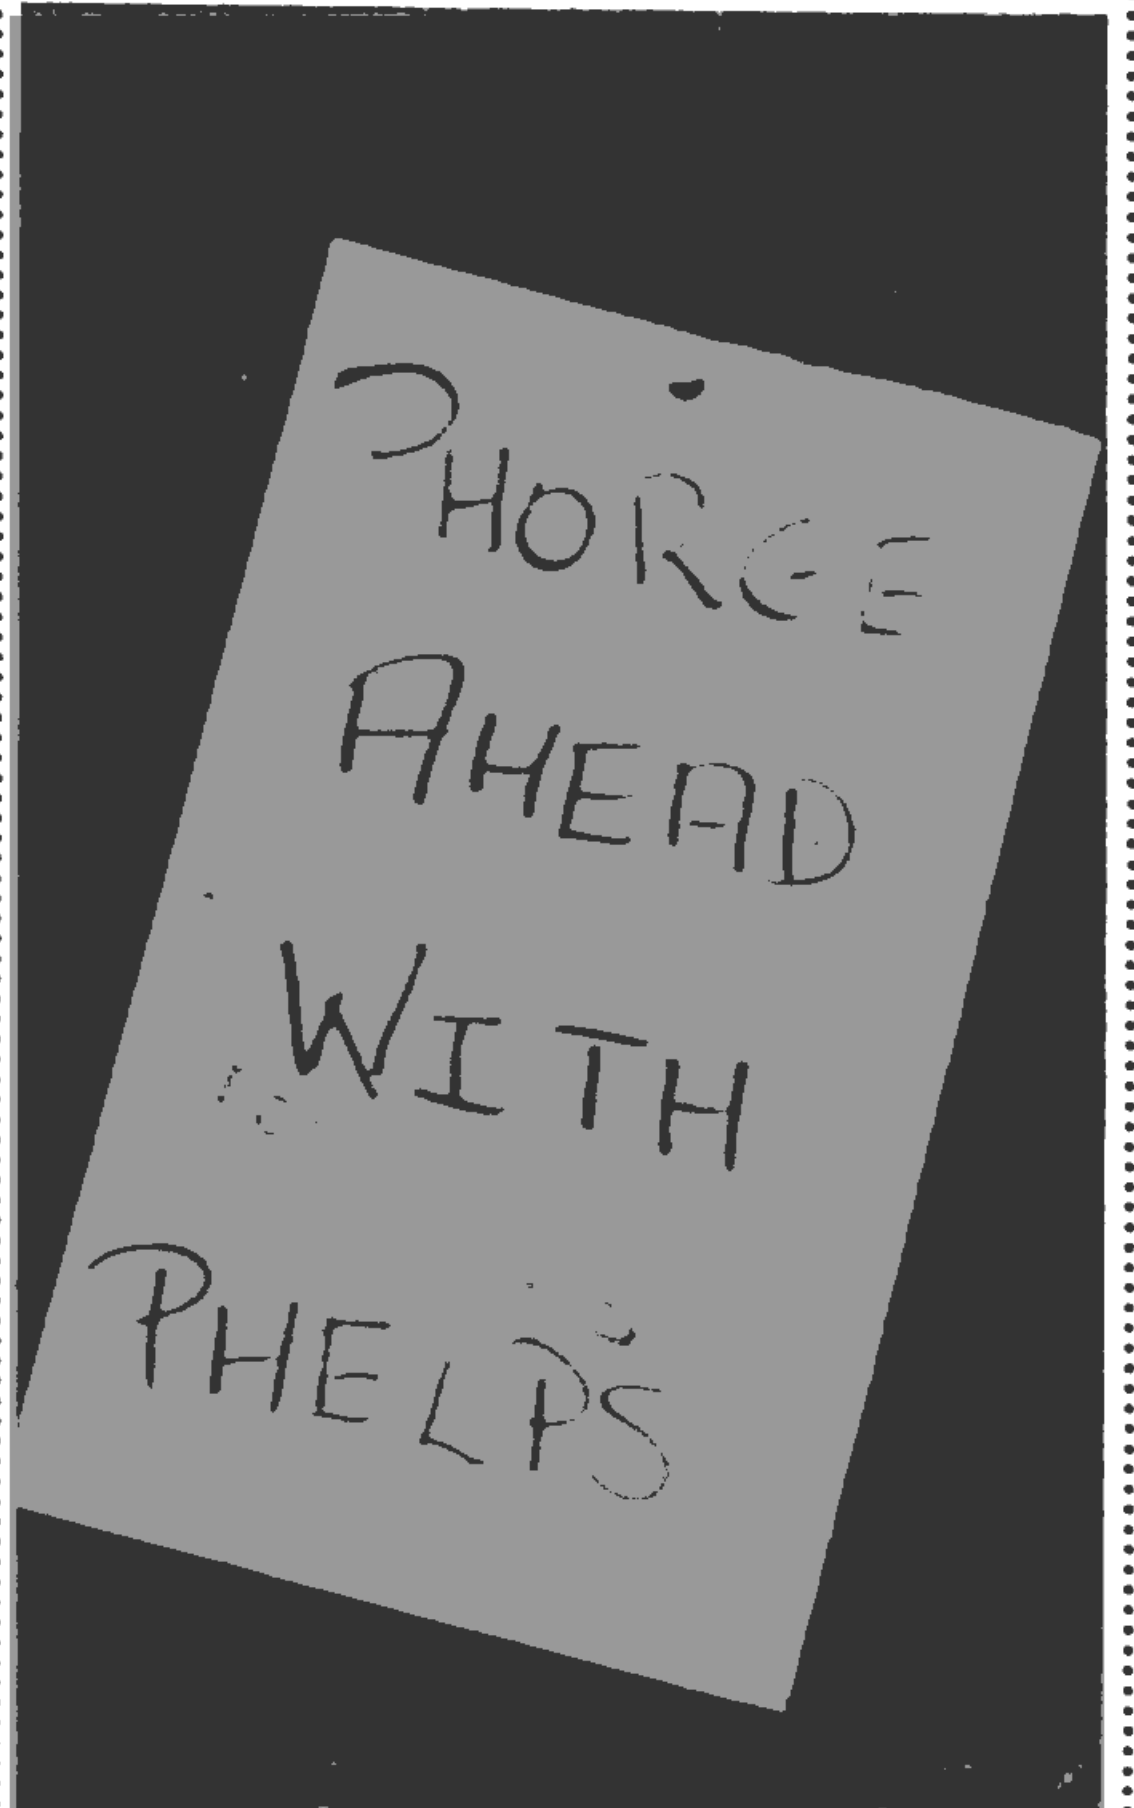 PHORGE
AHEAD
WITH
PHELPS